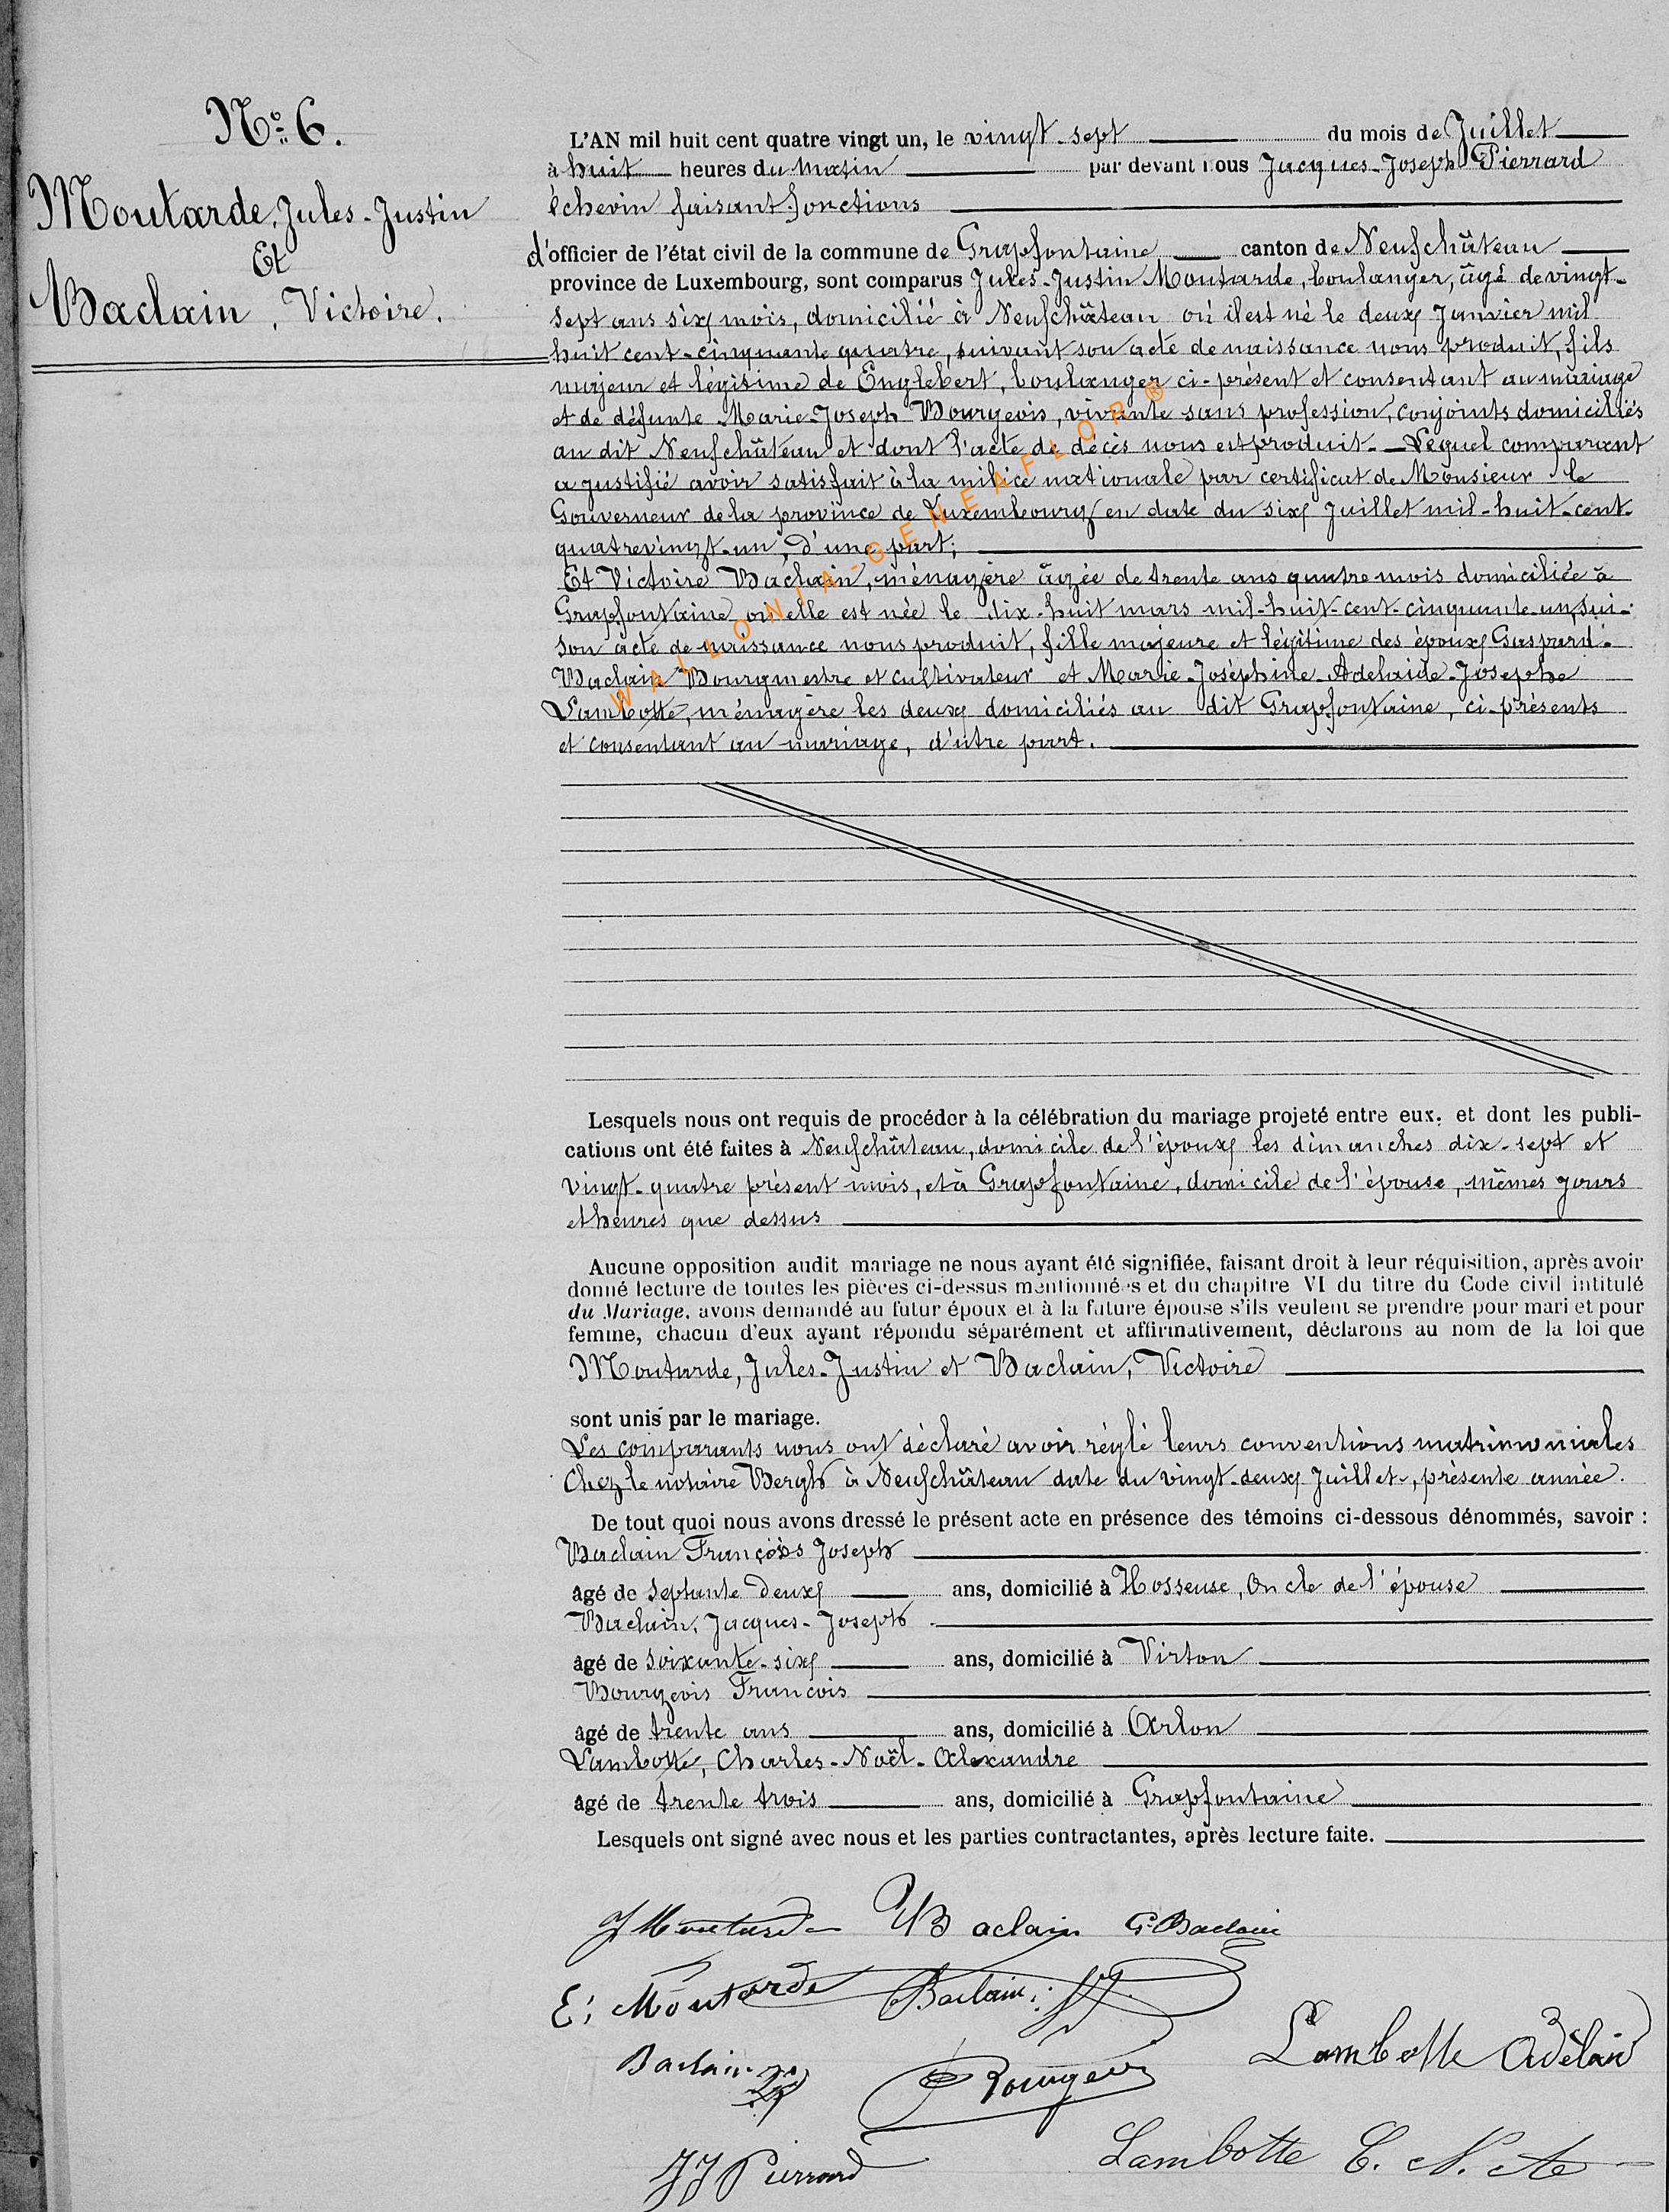 Nº 6.
Moutarde, Jules-Justin
Et
Baclain, Victoire.
L'AN mil huit cent quatre vingt un, le vingt-sept du mois de Juillet
à huit heures du matin par devant nous Jacques-Joseph Pierrard
échevin faisant fonctions
d'officier de l'état civil de la commune de Grapfontaine canton de Neufchâteau
province de Luxembourg, sont comparus Jules-Justin Moutarde, boulanger, âgé de vingt-
sept ans six mois, domicilié à Neufchâteau où il est né le deux Janvier mil
huit cent-cinquante quatre, suivant son acte de naissance nous produit, fils
majeur et légitime de Englebert, boulanger ci-présent et consentant au mariage
et de défunte Marie-Joseph Bourgeois, vivante sans profession, conjoints domiciliés
au dit Neufchâteau et dont l'acte de décès nous est produit. - Lequel comparant
a justifié avoir satisfait à la milice nationale par certificat de Monsieur le
Gouverneur de la province de Luxembourg en date du six Juillet mil-huit-cent-
quatrevingt-un, d'une part;
Et Victoire Baclain, ménagère âgée de trente ans quatre mois domiciliée à
Grapfontaine où elle est née le dix-huit mars mil-huit-cent-cinquante-un, sui-
son acte de naissance nous produit, fille majeure et légitime des époux Gaspard-
Baclain Bourgmestre et cultivateur et Marie-Joséphine-Adelaïde-Josephe
Lambotte, ménagère les deux domiciliés au dit Grapfontaine, ci-présents
et consentant au mariage, d'utre part.
WALLONIA-GENEAFLOR®
Lesquels nous ont requis de procéder à la célébration du mariage projeté entre eux. et dont les publi-
cations ont été faites à Neufchâteau, domicile de l'époux les dimanches dix-sept et
vingt-quatre présent mois, et à Grapfontaine, domicile de l'épouse, mêmes jours
et heures que dessus
Aucune opposition audit mariage ne nous ayant été signifiée, faisant droit à leur réquisition, après avoir
donné lecture de toutes les pièces ci-dessus mentionnées et du chapitre VI du titre du Code civil intitulé
du Mariage. avons demandé au futur époux et à la future épouse s'ils veulent se prendre pour mari et pour
femme, chacun d'eux ayant répondu séparément et affirmativement, déclarons au nom de la loi que
Moutarde, Jules-Justin et Baclain, Victoire
sont unis par le mariage.
Les comparants nous ont déclaré avoir réglé leurs conventions matrimoniales
Chez le notaire Bergh à Neufchâteau date du vingt-deux Juillet, présente année.
De tout quoi nous avons dressé le présent acte en présence des témoins ci-dessous dénommés, savoir :
Baclain François Joseph
âgé de septante deux ans, domicilié à Hosseuse, Oncle de l'épouse
Baclain, Jacques-Joseph
âgé de soixante-six ans, domicilié à Virton
Bourgeois François
âgé de trente ans ans, domicilié à Arlon
Lambotte, Charles-Noël-Alexandre
âgé de trente trois ans, domicilié à Grapfontaine
Lesquels ont signé avec nous et les parties contractantes, après lecture faite.
J Moutarde V Baclain G. Baclain
E: Moutarde Baclain: JJ.
Baclain Bourgeois Lambotte Adélaïd
JJ Pierrard Lambotte C. N. A